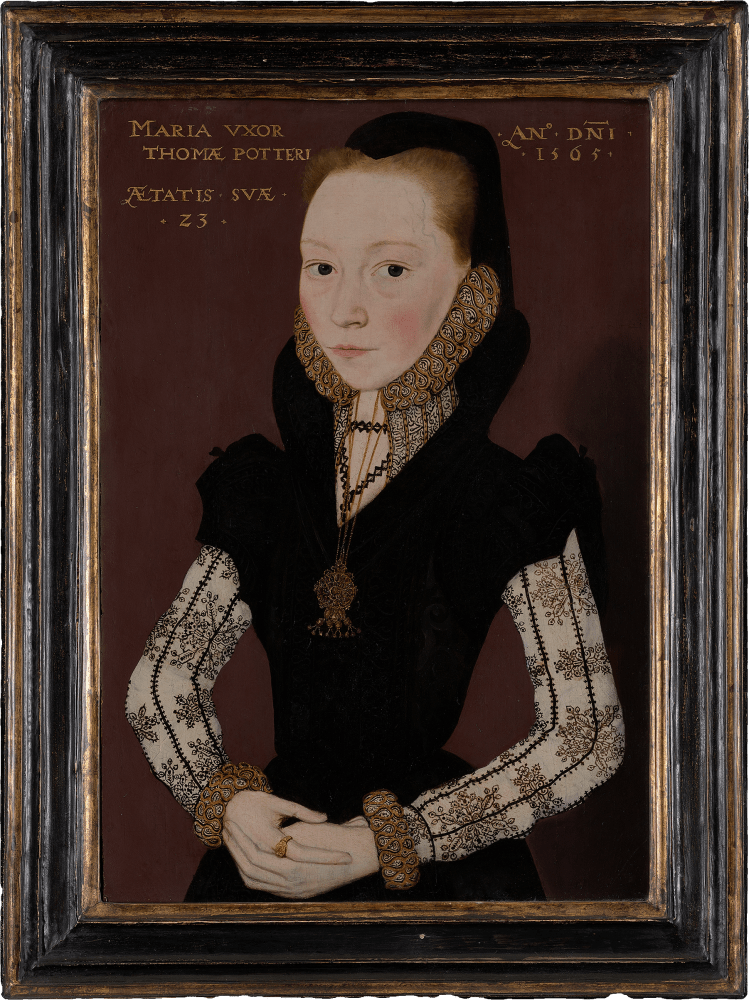 MARIA VXOR
THOMÆ POTTERI
ÆTATIS · SVÆ ·
· 23 ·
· ANº · DN̄I ·
· 1565 ·